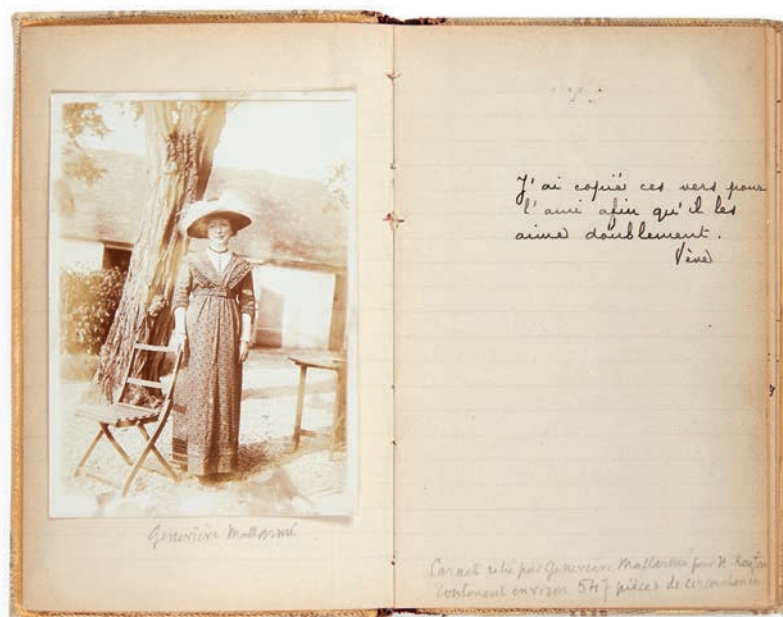 Geneviève Mallarmé
J'ai copié ces vers pour
l'ami afin qu'il les
aime doublement.
Vève
Carnet relié par Geneviève Mallarmé pour
contenant environ 547 pièces de circonstance